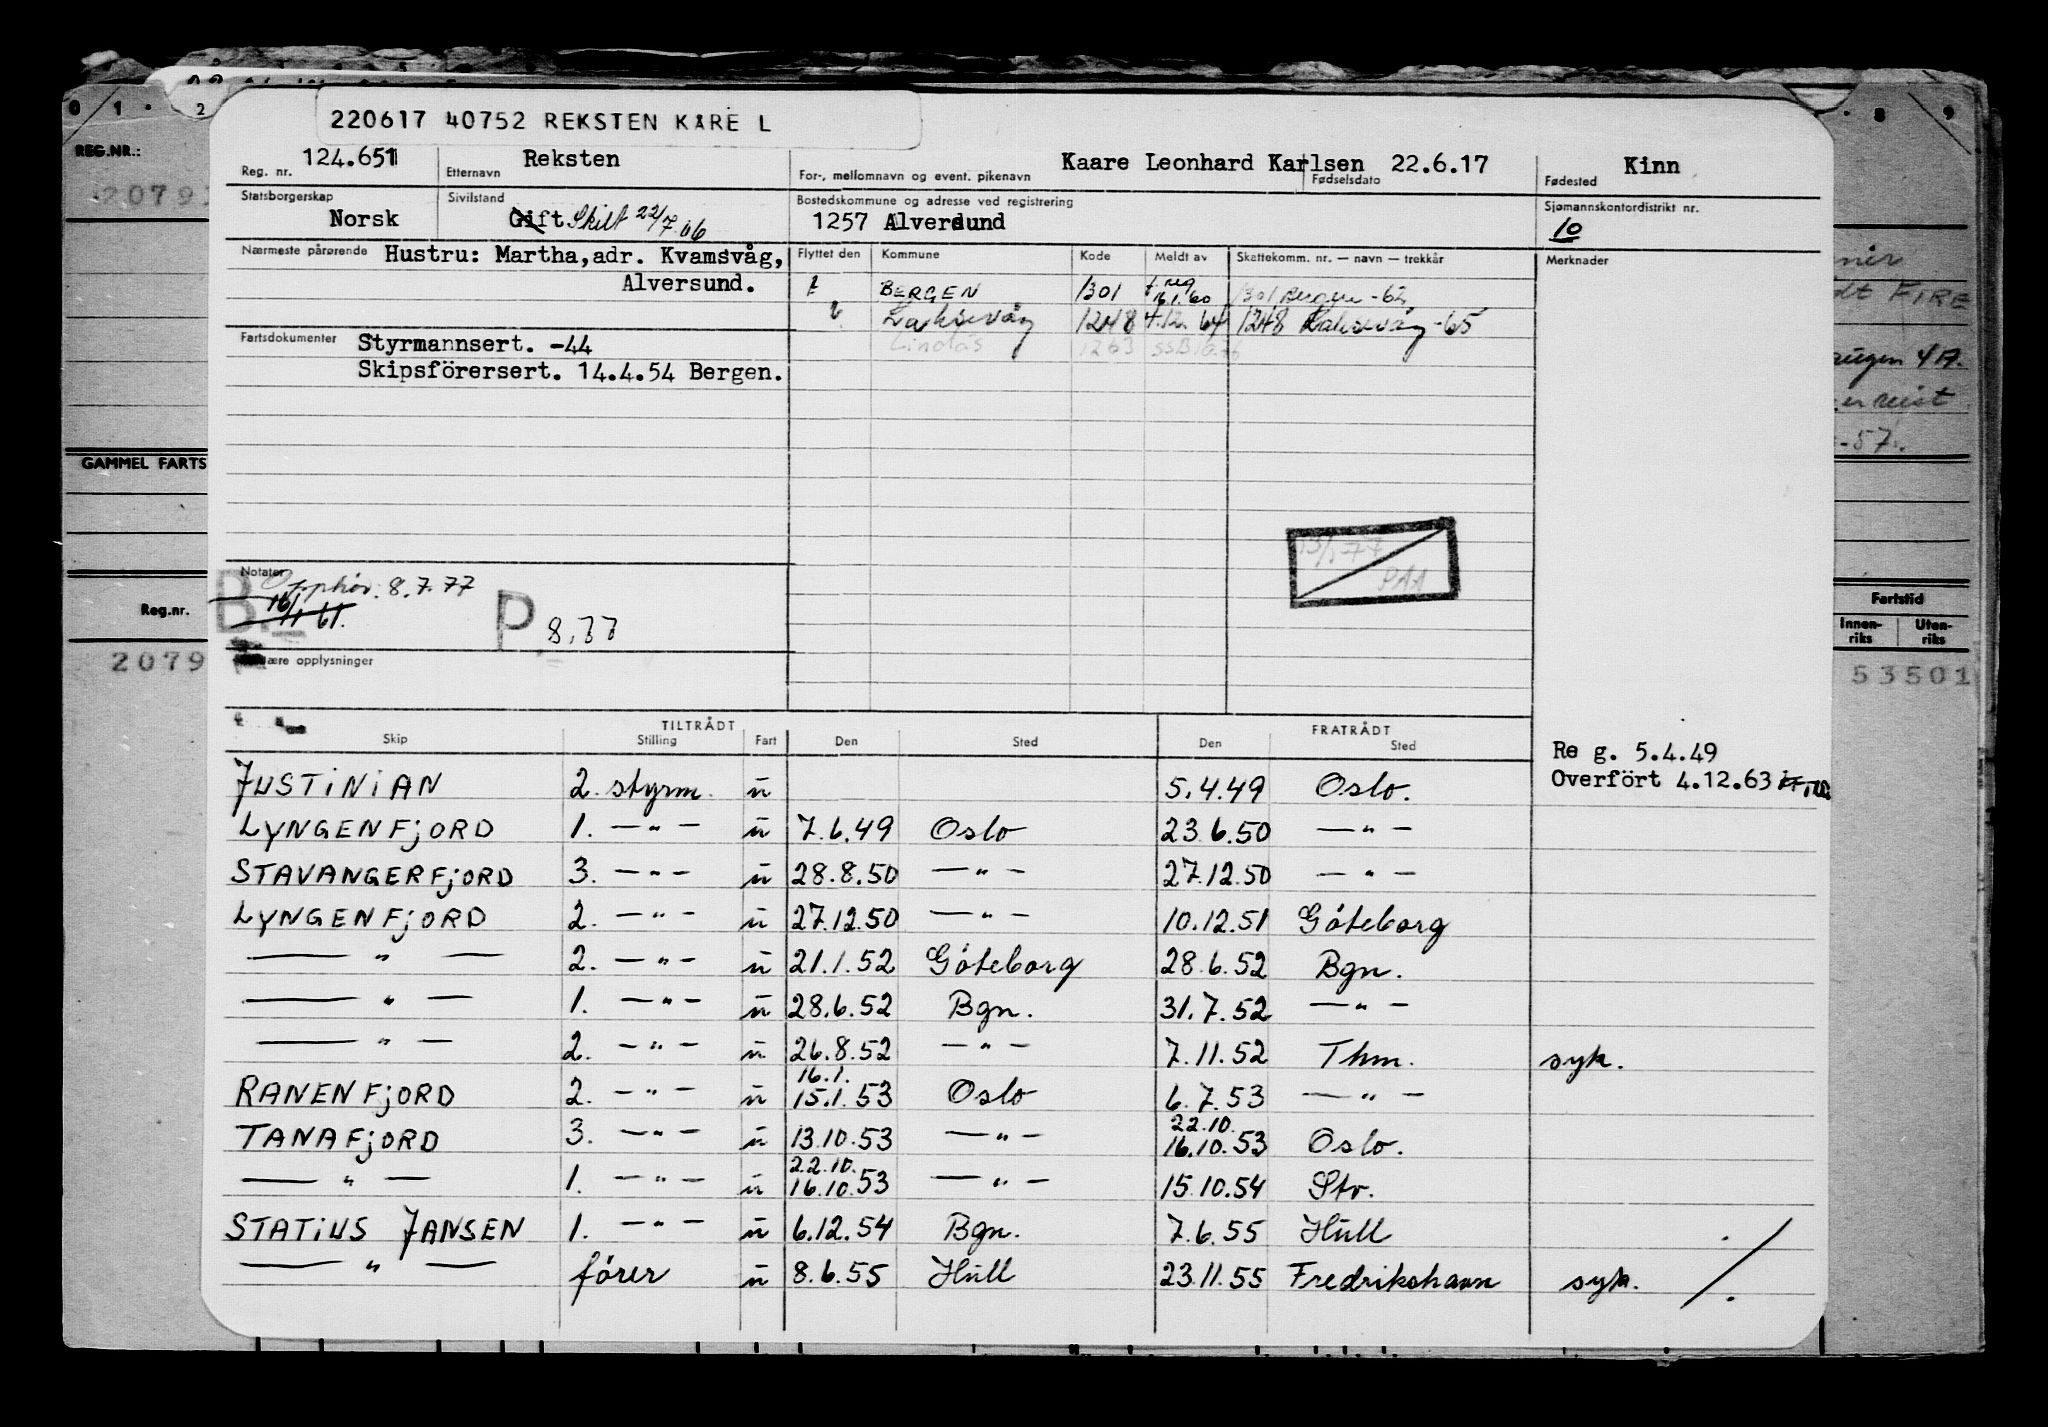 220617 40752 REKSTEN KARE L
REG.NR.:
Reg. nr. 124.651
Etternavn Reksten
For-, mellomnavn og event. pikenavn Kaare Leonhard Karlsen
Fødselsdato 22.6.17
Fødested Kinn
Statsborgerskap Norsk
Sivilstand Gift Skilt
Bostedskommune og adresse ved registrering
1257 Alversund
Sjømannskontordistrikt nr.
10
Nærmeste pårørende Hustru: Martha, adr. Kvamsvåg,
Alversund.
Flyttet den Kommune Kode Meldt av Skattekomm. nr. — navn — trekkår Merknader
BERGEN 1301 1301 Bergen -62
Laksevåg 1248 64 1248 Laksevåg -65
Lindås 1263
Fartsdokumenter Styrmannsert. -44
Skipsförersert. 14.4.54 Bergen.
GAMMEL FARTS
Notater
Opphør. 8.7.77
P 8.77
PAA
Reg.nr.
2079
Fartstid
Innen-riks Uten-riks
53501
opplysninger
TILTRÅDT FRATRÅDT
Skip Stilling Fart Den Sted Den Sted
Re g. 5.4.49
Overfört 4.12.63
JUSTINIAN 2. styrm. u 5.4.49 Oslo.
LYNGENFJORD 1. — " — u 7.6.49 Oslo 23.6.50 — " —
STAVANGERFJORD 3. — " — u 28.8.50 — " — 27.12.50 — " —
LYNGENFJORD 2. — " — u 27.12.50 — " — 10.12.51 Göteborg
— " — 2. — " — u 21.1.52 Göteborg 28.6.52 Bgn.
— " — 1. — " — u 28.6.52 Bgn. 31.7.52 — " —
— " — 2. — " — u 26.8.52 — " — 7.11.52 Thm. syk.
16.1.
RANENFJORD 2. — " — u 15.1.53 Oslo 6.7.53 — " —
22.10.
TANAFJORD 3. — " — u 13.10.53 — " — 16.10.53 Oslo.
22.10.
— " — 1. — " — u 16.10.53 — " — 15.10.54 Stv.
STATIUS JANSEN 1. — " — u 6.12.54 Bgn. 7.6.55 Hull
— " — förer u 8.6.55 Hull 23.11.55 Fredrikshavn syk.